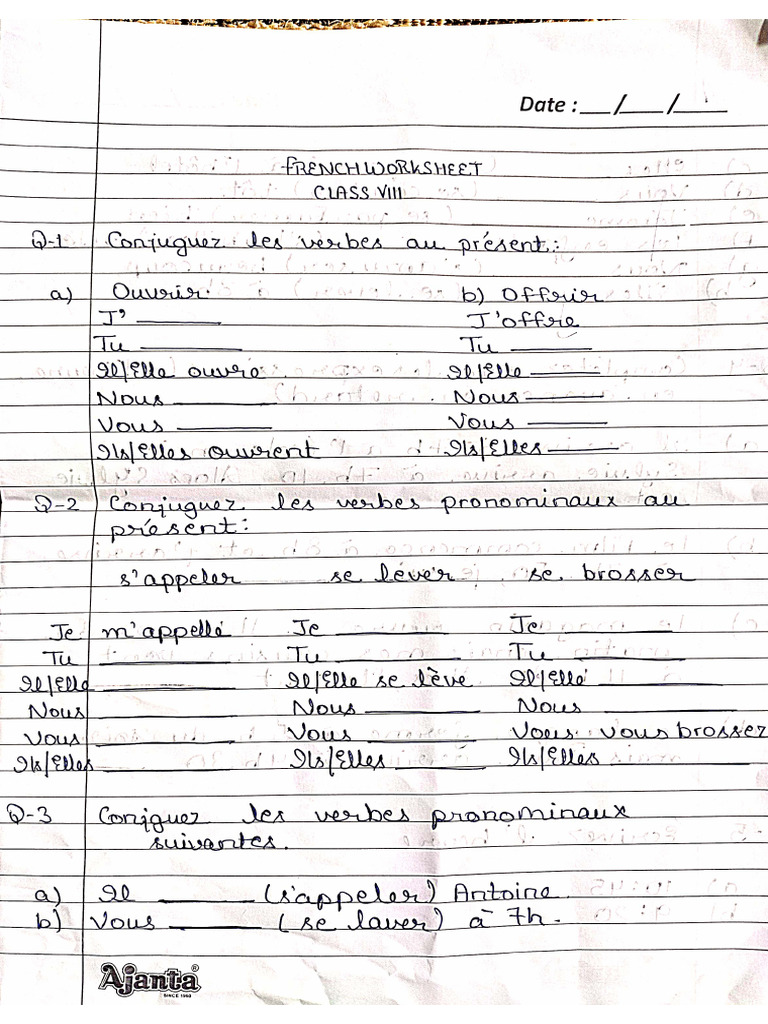 Date : ___/___/___
FRENCH WORKSHEET
CLASS VIII
Q-1 Conjuguez les verbes au présent:
a) Ouvrir. b) Offrir
J' ______ J'offre
Tu ______ Tu ______
Il/Elle ouvre Il/Elle ______
Nous ______ Nous ______
Vous ______ Vous ______
Ils/Elles ouvrent Ils/Elles ______
Q-2 Conjuguez les verbes pronominaux au
présent:
s'appeler se lever se brosser
Je m'appelle Je ______ Je ______
Tu ______ Tu ______ Tu ______
Il/Elle ______ Il/Elle se lève Il/Elle ______
Nous ______ Nous ______ Nous ______
Vous ______ Vous ______ Vous vous brossez
Ils/Elles ______ Ils/Elles ______ Ils/Elles ______
Q-3 Conjguez les verbes pronominaux
suivantes.
a) Il ______ (s'appeler) Antoine.
b) Vous ______ (se laver) à 7h.
Ajanta
SINCE 1960